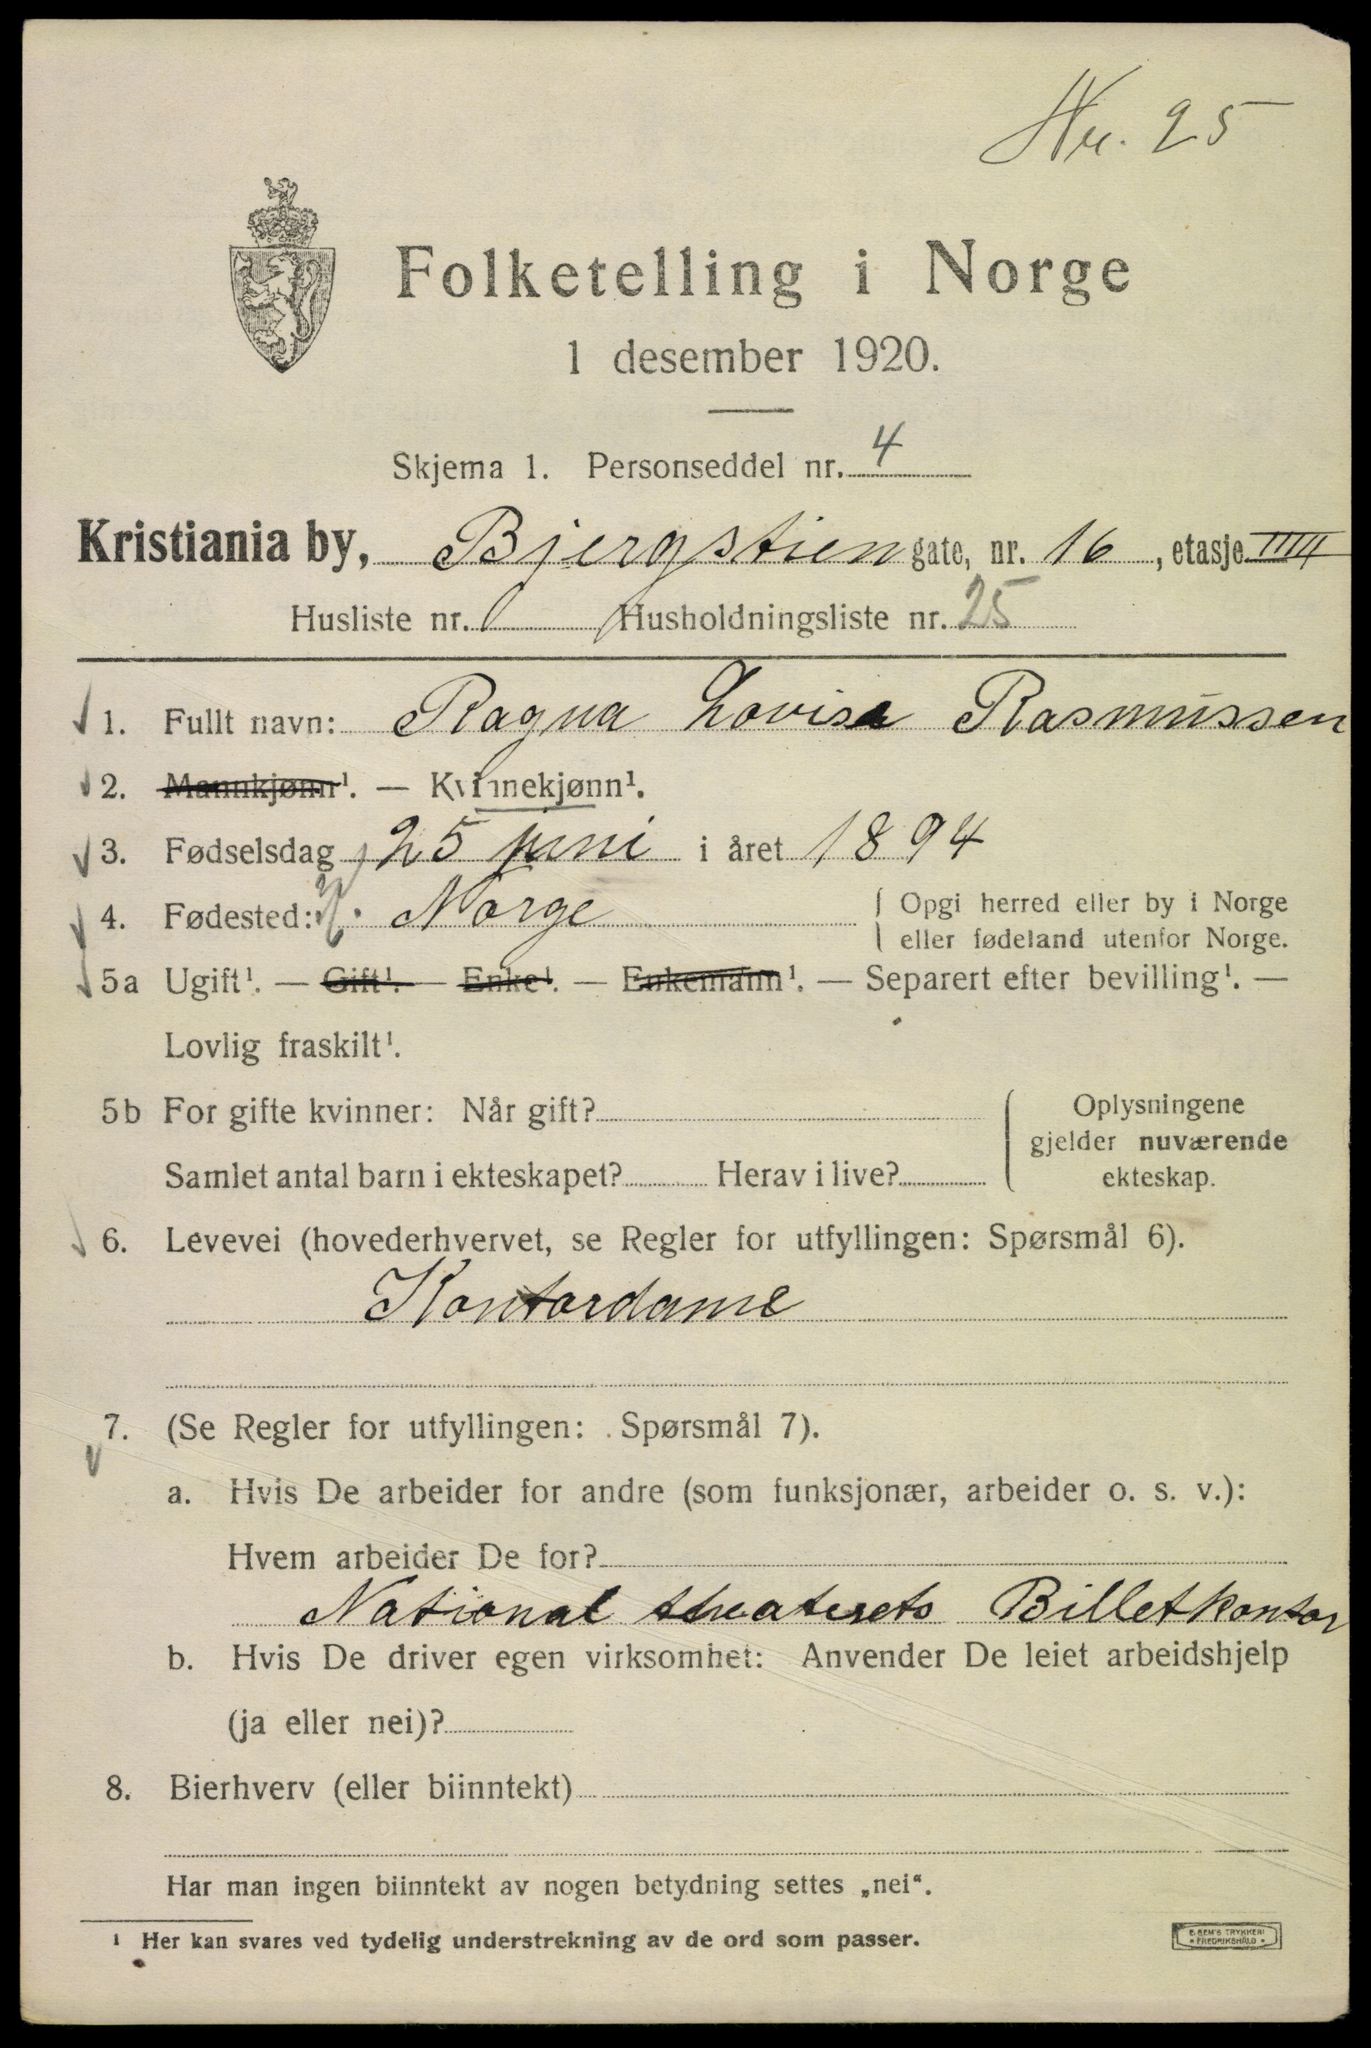 Nr. 25
Folketelling i Norge
1 desember 1920.
Skjema 1. Personseddel nr. 4
Kristiania by, Bjergstien gate, nr. 16, etasje IIII
Husliste nr. Husholdningsliste nr. 25
1. Fullt navn: Ragna Lovise Rasmussen
2. Mannkjønn¹. — Kvinnekjønn¹.
3. Fødselsdag 25 juni i året 1894
4. Fødested: Norge { Opgi herred eller by i Norge
eller fødeland utenfor Norge.
5a Ugift¹. — Gift¹. — Enke¹. — Enkemann¹. — Separert efter bevilling¹. —
Lovlig fraskilt¹.
5b For gifte kvinner: Når gift? { Oplysningene
gjelder nuværende
Samlet antal barn i ekteskapet? Herav i live? ekteskap.
6. Levevei (hovederhvervet, se Regler for utfyllingen: Spørsmål 6).
Kontordame
7. (Se Regler for utfyllingen: Spørsmål 7).
a. Hvis De arbeider for andre (som funksjonær, arbeider o. s. v.):
Hvem arbeider De for?
National theaterets Billetkontor
b. Hvis De driver egen virksomhet: Anvender De leiet arbeidshjelp
(ja eller nei)?
8. Bierhverv (eller biinntekt)
Har man ingen biinntekt av nogen betydning settes „nei“.
¹ Her kan svares ved tydelig understrekning av de ord som passer.
E. SEM'S TRYKKERI
FREDRIKSHALD